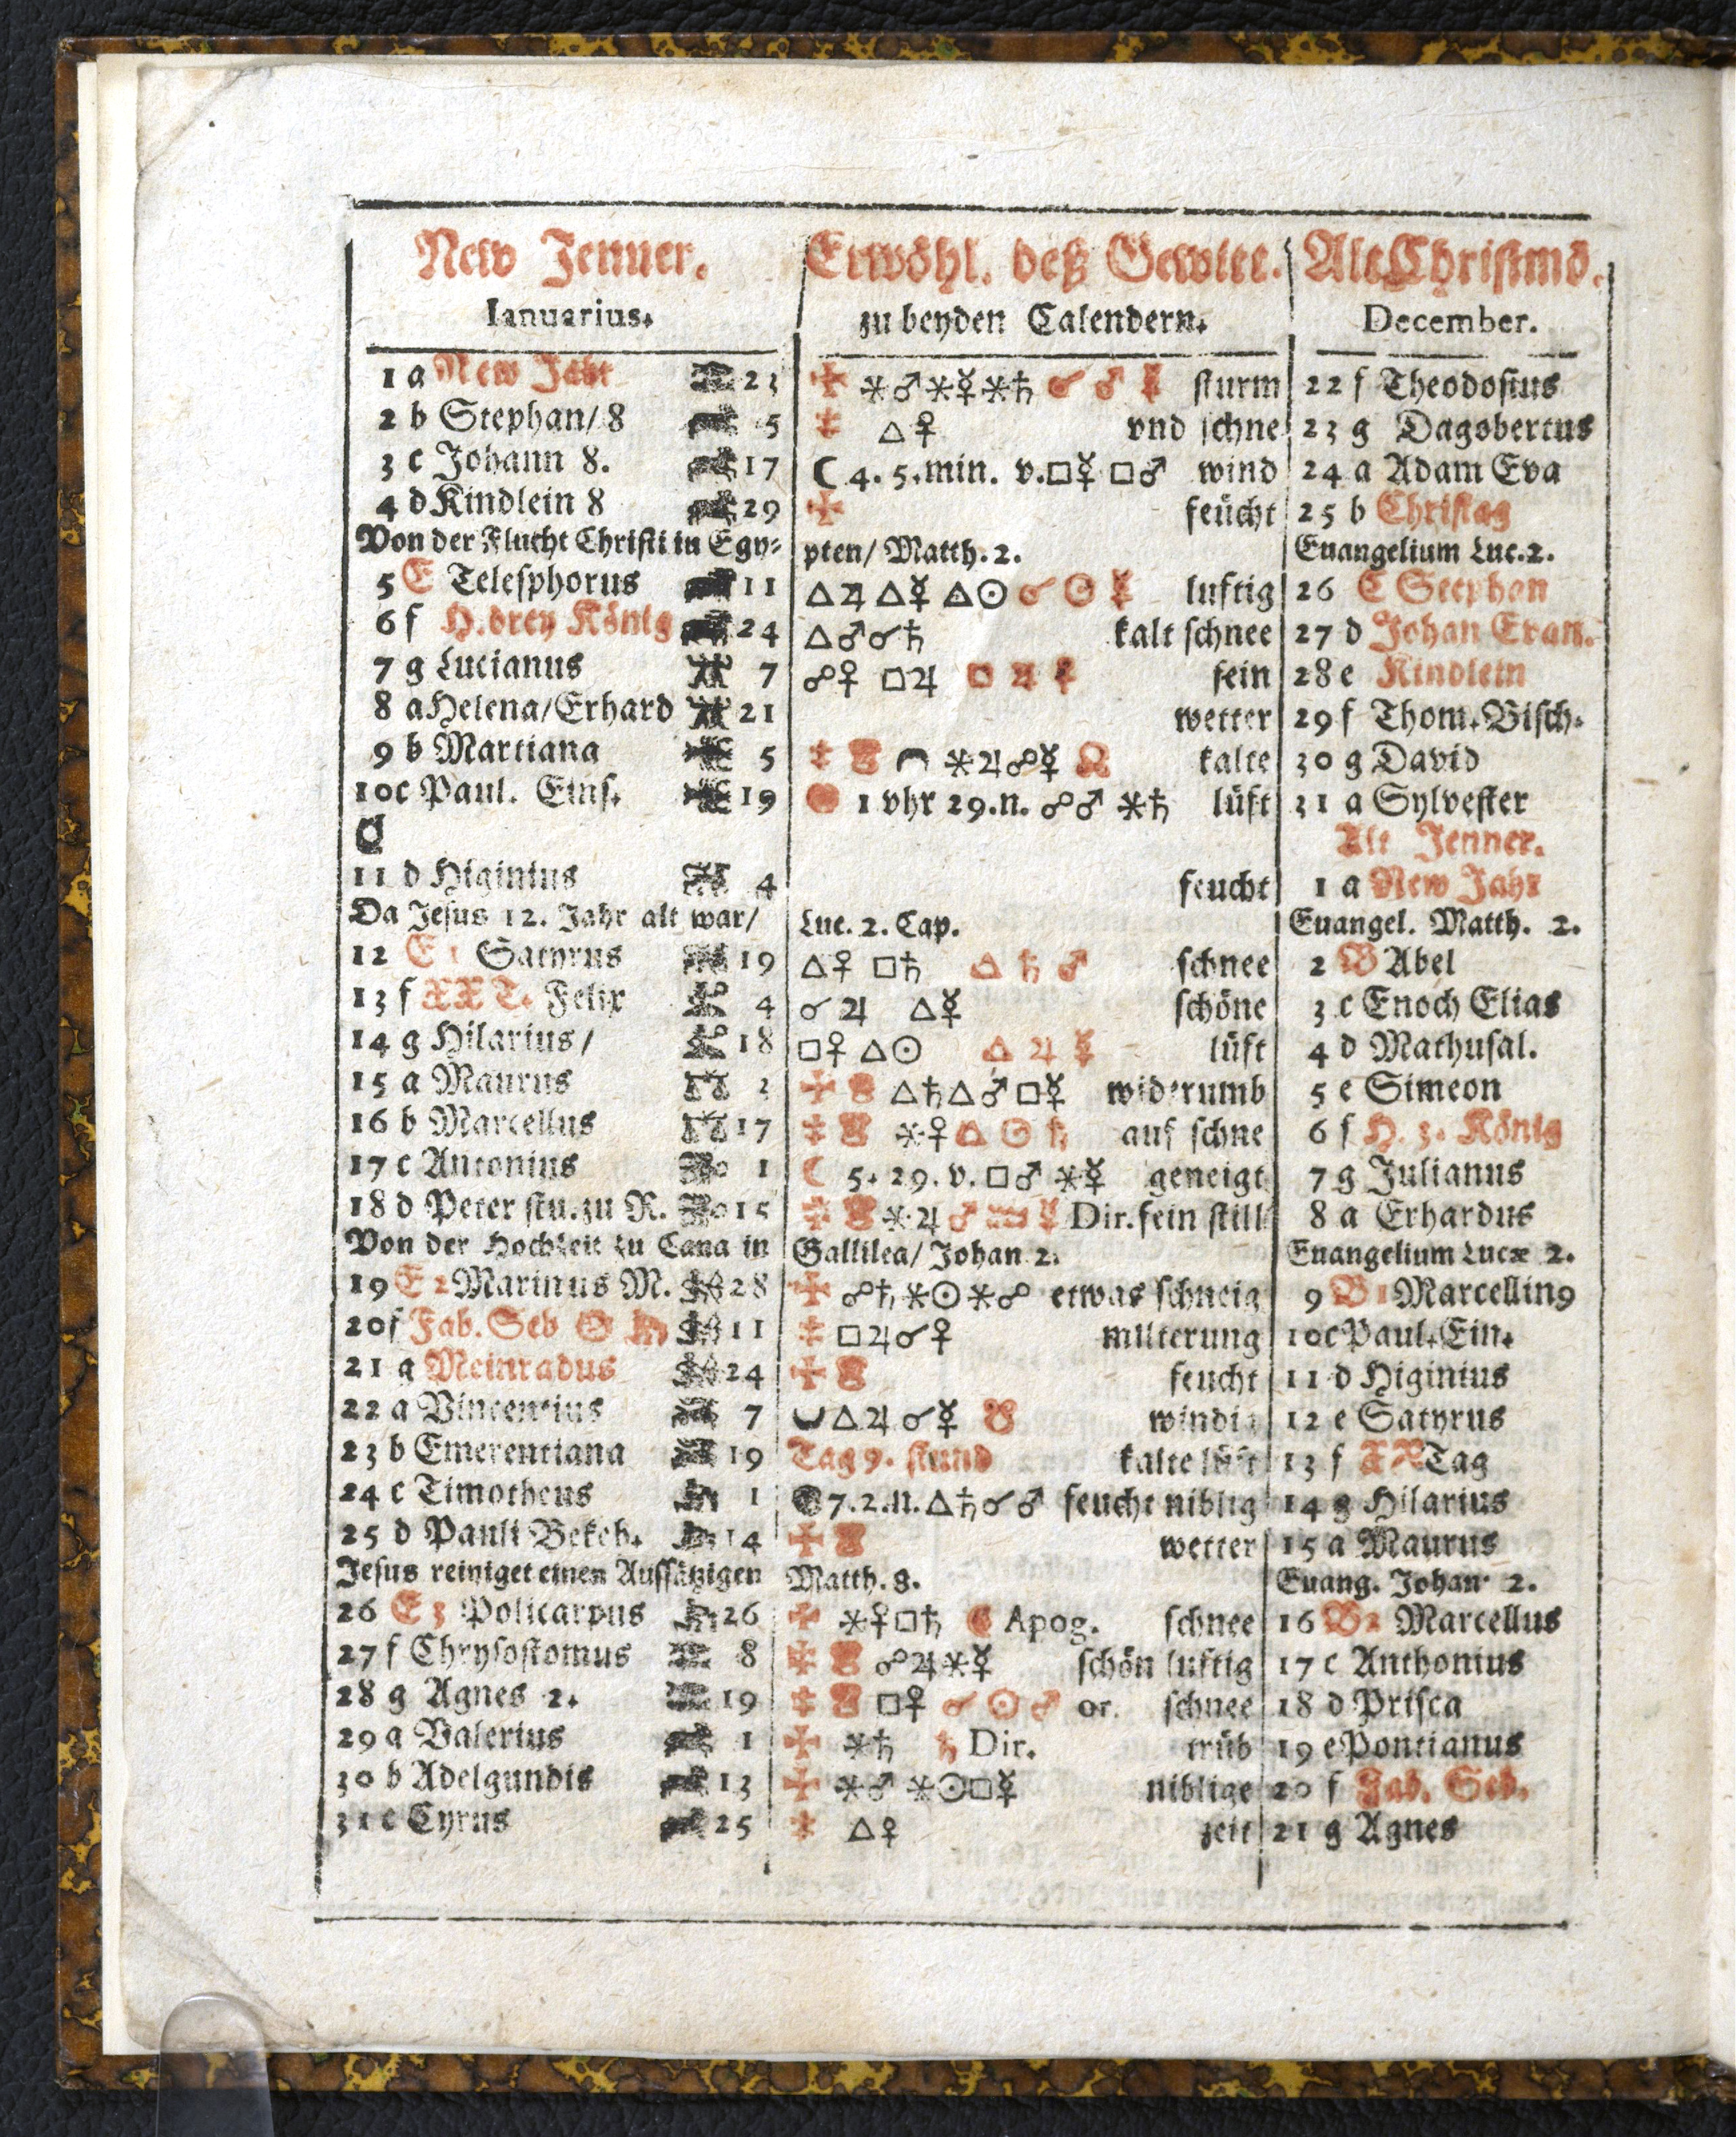 New Jenner. Erwöhl. deß Gewitt. Alt Christmo.
Ianuarius. zu beyden Calendern. December.
1 a New Jahr 23 ⚹♂⚹☿⚹♄ ☌ ♂ ☿ sturm 22 f Theodosius
2 b Stephan/ 8 5 △♀ vnd schne 23 g Dagobertus
3 c Johann 8. 17 ☾ 4. 5. min. v. □☿ □♂ wind 24 a Adam Eva
4 d Kindlein 8 29 feücht 25 b Christag
Von der Flucht Christi in Egy⸗ pten/ Matth. 2. Euangelium Luc. 2.
5 E Telesphorus 11 △♃ △☿ △☉ ☌ ☉ ☿ luftig 26 C Stephan
6 f H. drey König 24 △♂☌♄ kalt schnee 27 d Johan Evan.
7 g Lucianus 7 ☍♀ □♃ □ ♃ ☿ fein 28 e Kindlein
8 a Helena/Erhard 21 wetter 29 f Thom. Bisch.
9 b Martiana 5 ⚹♃☍☿ ☊ kalte 30 g David
10 c Paul. Eins. 19 1 vhr 29. n. ☍♂ ⚹♄ lüft 31 a Sylvester
Alt Jenner.
11 d Higinius 4 feucht 1 a New Jahr
Da Jesus 12. Jahr alt war/ Luc. 2. Cap. Euangel. Matth. 2.
12 E 1 Satyrus 19 △♀ □♄ △ ♄ ♂ schnee 2 B Abel
13 f XX T. Felix 4 ☌ ♃ △☿ schöne 3 c Enoch Elias
14 g Hilarius/ 18 □♀ △☉ △ ♃ ☿ lüft 4 d Mathusal.
15 a Maurus 2 △♄△♂□☿ widerumb 5 e Simeon
16 b Marcellus 17 ⚹♀ △ ☉ ♄ auf schne 6 f H. 3. König
17 c Antonius 1 ☾ 5. 29. v. □♂ ⚹☿ geneigt 7 g Julianus
18 d Peter stu. zu R. 15 ⚹♃ ♂ ♒ ☿ Dir. fein still 8 a Erhardus
Von der Hochzeit zu Cana in Gallilea/ Johan 2. Euangelium Lucæ 2.
19 E 2 Marinus M. 28 ☍♄⚹☉⚹☍ etwas schneig 9 B 1 Marcellin9
20 f Fab. Seb ☉ 11 □♃☌♀ milterung 10 c Paul. Ein.
21 g Meinradus 24 feucht 11 d Higinius
22 a Vincentius 7 △♃ ☌☿ ☋ windig 12 e Satyrus
23 b Emerentiana 19 Tag 9. stund kalte lüft 13 f XX Tag
24 c Timotheus 1 7. 2. n. △♄☌♂ feucht niblig 14 g Hilarius
25 d Pauli Bekeh. 14 wetter 15 a Maurus
Jesus reiniget einen Aussätzigen Matth. 8. Euang. Johan 2.
26 E 3 Policarpus 26 ⚹♀□♄ ☾ Apog. schnee 16 B 2 Marcellus
27 f Chrysostomus 8 ☍♃⚹☿ schön luftig 17 c Anthonius
28 g Agnes 2. 19 □♀ ☌ ☉ ♂ or. schnee 18 d Prisca
29 a Valerius 1 ⚹♄ ♄ Dir. trüb 19 e Pontianus
30 b Adelgundis 13 ⚹♂ ⚹☉□☿ niblige 20 f Fab. Seb.
31 c Cyrus 25 △♀ zeit 21 g Agnes